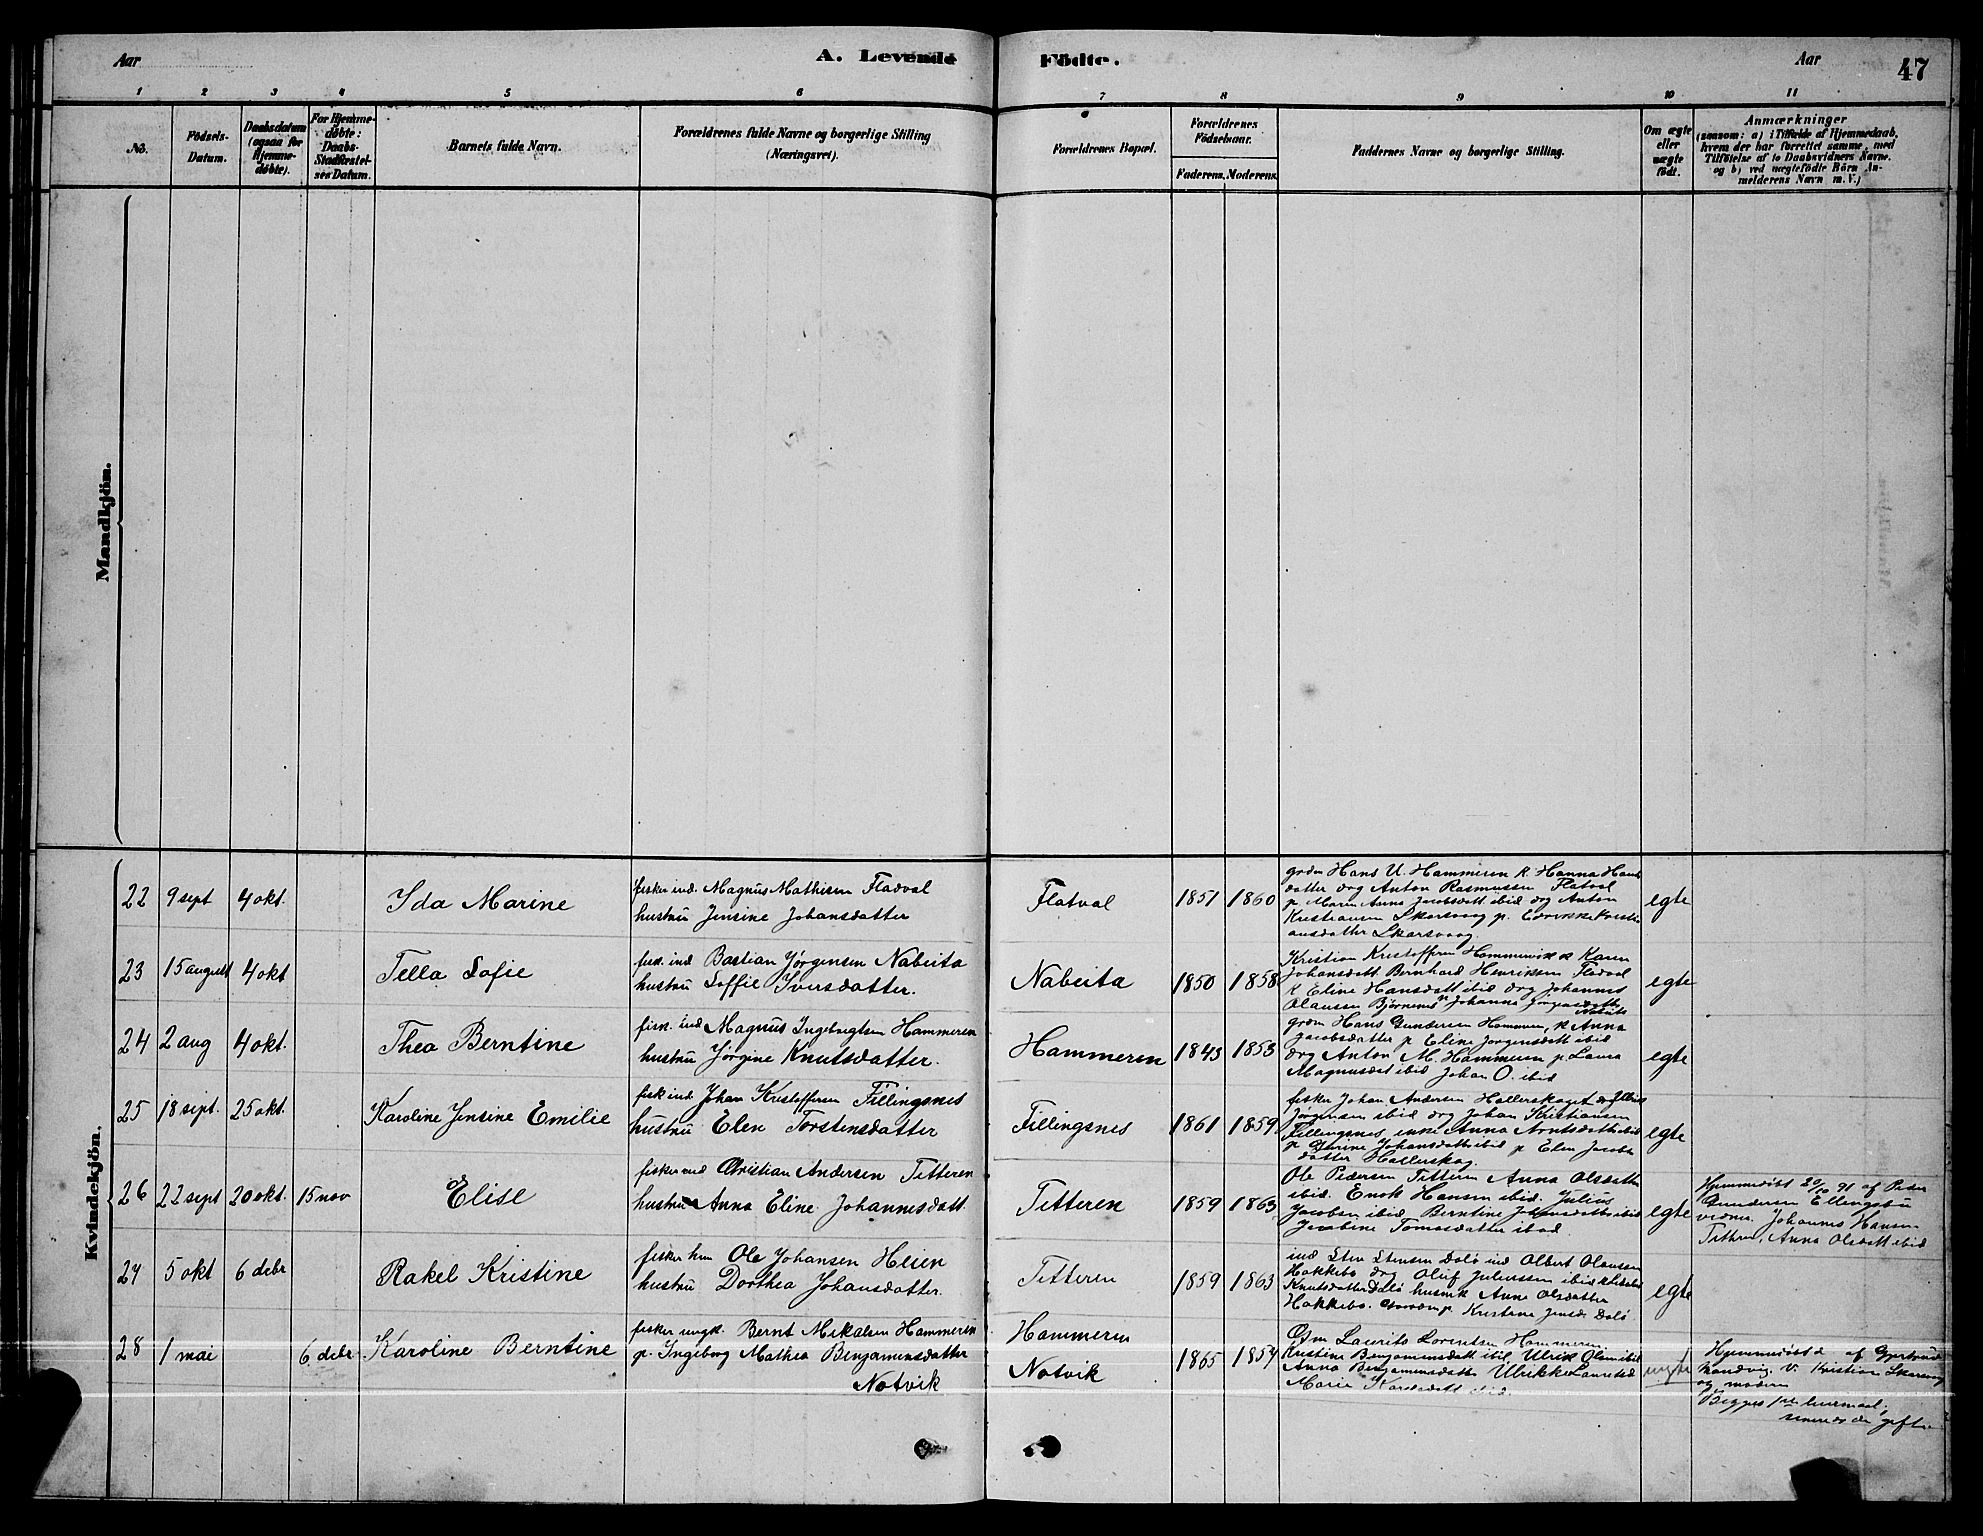 Aar
A. Levende Födte.
Aar
47
1 2 3 4 5 6 7 8 9 10 11
No.
Födsels-Datum.
Daabsdatum (ogsaa for Hjemme-döbte).
For Hjemme-döbte: Daabs-Stadfæstel-ses Datum.
Barnets fulde Navn.
Forældrenes fulde Navne og borgerlige Stilling (Næringsvei).
Forældrenes Bopæl.
Forældrenes Födselsaar.
Faderens. Moderens.
Faddernes Navne og borgerlige Stilling.
Om ægte eller uægte födt.
Anmærkninger
(saasom: a) i Tilfælde af Hjemmedaab, hvem der har forrettet samme, med Tilföielse af to Daabsvidners Navne. og b) ved uægtefödte Börn An-melderens Navn m. V.)
Mandkjön.
Kvindekjön.
22 9 sept 4 okt. Yda Marine
fisker ind. Magnus Mathisen Fladval
hustru Jensine Johansdatter
Flatval 1851 1860
grdm Hans U. Hammeren k. Hanna Hans
datter drg Anton Rasmussen Flatval
p. Maren Anna Jacobsdatt ibid drg Anton
Kristiansen Skarsvaag p.
ansdatter Skarsvaag.
egte
23 15 august 4 okt Tella Sofie
fisk. ind Bastian Jørgensen Nabeita
hustru Soffie Iversdatter.
Nabeita 1850 1858
Kristian Kristoffersen Hammervik k Karen
Johansdatt Bernhard Henriksen Fladval
k Eline Hansdatt ibid drg Johannes
Olausen Bjørnenes Johanna Jørgensdatter
Nabeita
egte
24 2 aug 4 okt. Thea Berntine
fisk. ind Magnus Ingebregtsen Hammeren
hustru Jørgine Knutsdatter.
Hammeren 1843 1853
grdm Hans Gundersen Hammeren, k Anna
Jacobsdatter p Eline Jørgensdatt ibid
drg Anton M. Hammeren p. Laura
Magnusdat ibid Johan O. ibid
egte
25 18 sept. 25 okt. Karoline Jensine Emilie
fisk ind. Johan Kristoffersen Fillingsnes
hustru Elen Torstensdatter
Fillingsnes 1861 1859
fisker Johan Andersen Hallerskaget drg
Jørgensen ibid drg Johan Kristiansen
Fillingsnes enke Anna Arntsdatt ibid
p Johansdatt ibid p Elen Jacobs
datter Hallerskag.
egte
26 22 sept 20 okt. 15 nov Elise
fisker ind Christian Andersen Titteren
hustru Anna Eline Johannesdatt.
Titteren 1859 1863
Ole Pedersen Titteren Anna Olsdatter
ibid. Enok Hansen ibid. Julius
Jacobsen ibid Berntine Johansdatter ibid
Jacobine Tomasdatter ibid.
egte
Hjemmedøbt 20/10 91 af Peder
Gundersen
vidner. Johannes Hansen
Titteren, Anna Olsdatt ibid
27 5 okt 6 debr Rakel Kristine
fisker hm Ole Johansen Heien
hustru Dorthea Johansdatter.
Titteren 1859 1863
ind Sten Stensen Dolø ind Albert Olausen
Hokkebo drg Oluf Juliussen ibid
Knutsdatter Dolø husm k Anne Olsdatter
Hokkebo. p. Kristine Dolø
egte
28 1 mai 6 debr Karoline Berntine
fisker ungk. Bernt Mikalsen Hammeren
p. Ingeborg Mathea Benjaminsdatter
Notvik
Hammeren
Notvik
1865 1857
Laurits Lorentsen Hammeren
Kristine Benjaminsdatt ibid, Ulrik ibid
Anna Benjaminsdatter Ulrikke
Marie ibid.
uegte
Hjemmedøbt af Gjertrud
V. Kristian Skarsvag
og moderen
Begges 1ste leiermaal,
senere de gifte